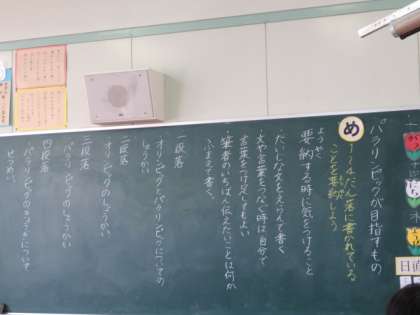 パラリンピックが目指すもの
め
1～4だん落に書かれている
ことを要約しよう
ようやく
要約する時に気をつけること
・だいじな文をえらんで書く
・文や言葉をつなぐ時は自分で
言葉をつけ足してもよい
・筆者のいちばん伝えたいことは何か
ふまえて書く。
一段落
・オリンピックとパラリンピックについての
しょうかい
二段落
オリンピックのしょうかい
三段落
パラリンピックのしょうかい
四段落
パラリンピックの
について
せつめい
日直